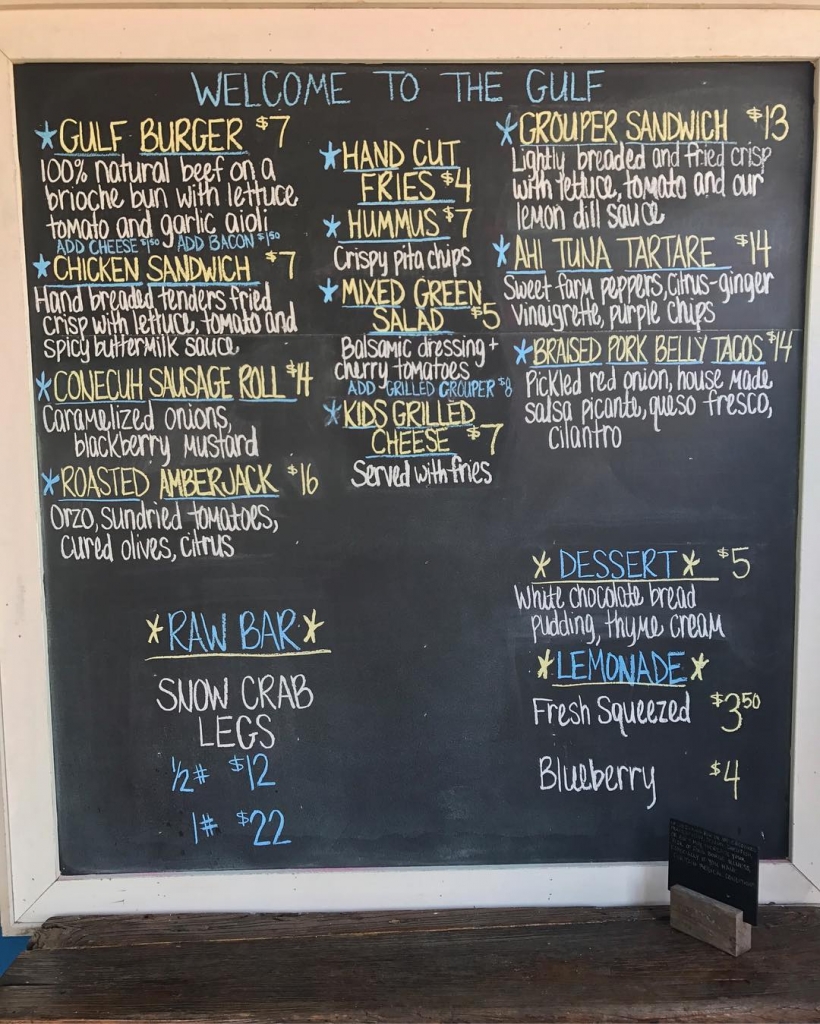 WELCOME TO THE GULF
GULF BURGER $7
100% natural beef on a
brioche bun with lettuce
tomato and garlic aioli
ADD CHEESE $1.50 / ADD BACON $1.50
CHICKEN SANDWICH $7
Hand breaded tenders fried
crisp with lettuce, tomato and
spicy buttermilk sauce
CONECUH SAUSAGE ROLL $14
Caramelized onions,
blackberry mustard
ROASTED AMBERJACK $16
Orzo, sundried tomatoes,
cured olives, citrus
HAND CUT
FRIES $4
HUMMUS $7
Crispy pita chips
MIXED GREEN
SALAD $5
Balsamic dressing +
cherry tomatoes
ADD GRILLED GROUPER $8
KIDS GRILLED
CHEESE $7
Served with fries
GROUPER SANDWICH $13
Lightly breaded and fried crisp
with lettuce, tomato and our
lemon dill sauce
AHI TUNA TARTARE $14
Sweet farm peppers, citrus-ginger
vinaigrette, purple chips
BRAISED PORK BELLY TACOS $14
Pickled red onion, house made
salsa picante, queso fresco,
cilantro
RAW BAR
SNOW CRAB
LEGS
1/2# $12
1# $22
DESSERT $5
White chocolate bread
pudding, thyme cream
LEMONADE
Fresh Squeezed $3.50
Blueberry $4